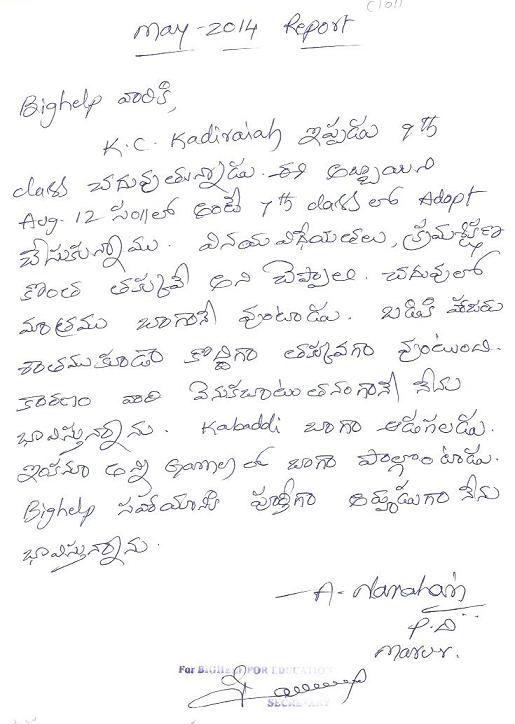 May-2014 Report
Bighelp వారికి,
K.C. Kadiraiah ఇప్పుడు 9th
class చదువుతున్నాడు. ఈ అబ్బాయిని
Aug-12 సం॥లో అంటే 7th class లో Adopt
చేసుకున్నాము. వినయవిధేయతలు, క్రమశిక్షణ
కొంత తక్కువే అని చెప్పాలి. చదువులో
మాత్రము బాగానే వుంటాడు. బడికి హాజరు
శాతముకూడా కొద్దిగా తక్కువగా వుంటుంది.
కారణం వారి వెనుకబాటుతనంగానే నేను
భావిస్తున్నాను. Kabaddi బాగా ఆడగలడు.
ఇంకా అన్ని Games లో బాగా పాల్గొంటాడు.
Bighelp సహాయానికి పూర్తిగా అర్హుడుగా నేను
భావిస్తున్నాను.
A-Narahari
P.D
For BIGHELP FOR EDUCATION
SECRETARY